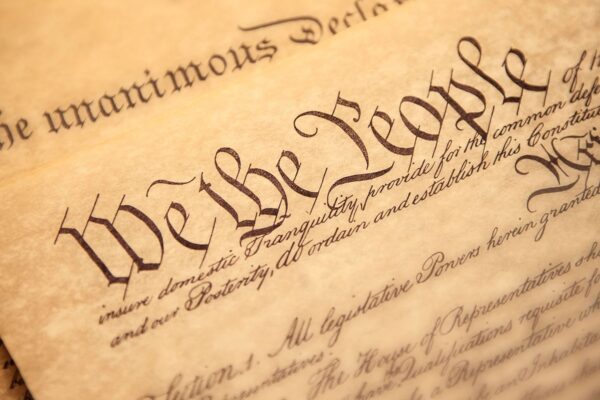 he unanimous Decla
We the People of
insure domestic Tranquility, provide for the common defe
and our Posterity, do ordain and establish this Constitu
Section. 1. All legislative Powers herein granted
The House of Representatives sha
Qualifications requisite fo
be a Representative wh
be an Inhabita